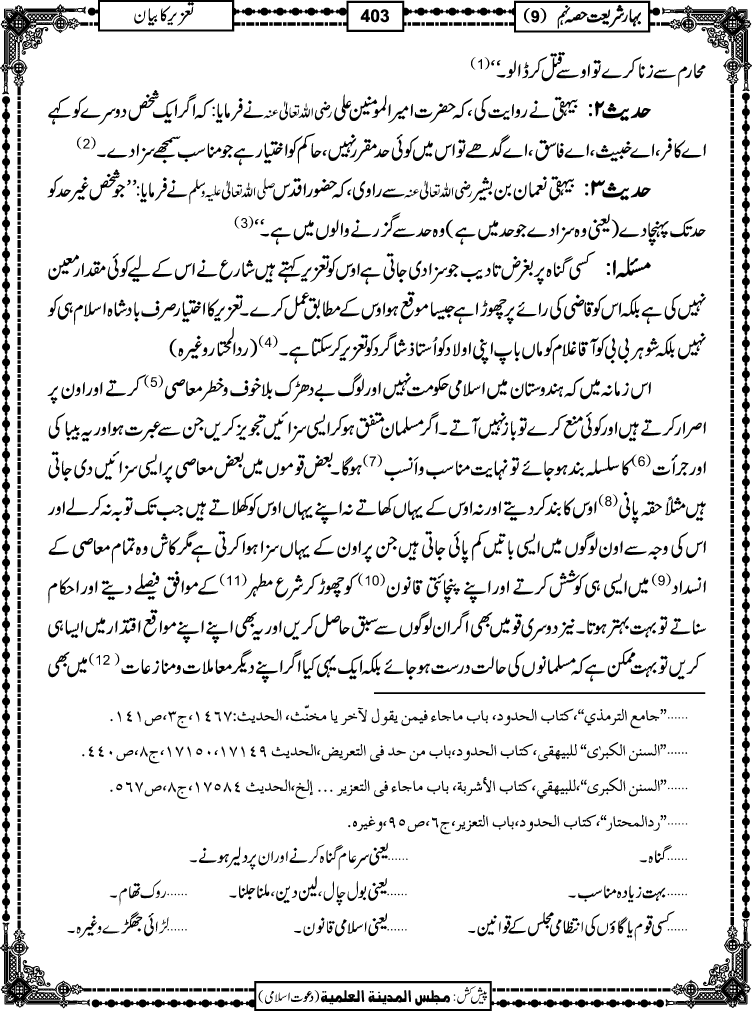 بہار شریعت حصہ نہم (9)
403
تعزیر کا بیان
محارم سے زنا کرے تو اوسے قتل کر ڈالو۔‘‘(1)
حدیث۲: بیہقی نے روایت کی، کہ حضرت امیر المومنین علی رضی اللہ تعالیٰ عنہ نے فرمایا: کہ اگر ایک شخص دوسرے کو کہے
اے کافر، اے خبیث، اے فاسق، اے گدھے تو اس میں کوئی حد مقرر نہیں، حاکم کو اختیار ہے جو مناسب سمجھے سزا دے۔(2)
حدیث۳: بیہقی نعمان بن بشیر رضی اللہ تعالیٰ عنہ سے راوی، کہ حضور اقدس صلی اللہ تعالیٰ علیہ وسلم نے فرمایا: ’’جو شخص غیر حد کو
حد تک پہنچا دے (یعنی وہ سزا دے جو حد میں ہے) وہ حد سے گزرنے والوں میں ہے۔‘‘(3)
مسئلہ۱: کسی گناہ پر بغرض تادیب جو سزا دی جاتی ہے اوس کو تعزیر کہتے ہیں شارع نے اس کے لیے کوئی مقدار معین
نہیں کی ہے بلکہ اس کو قاضی کی رائے پر چھوڑا ہے جیسا موقع ہو اوس کے مطابق عمل کرے۔ تعزیر کا اختیار صرف بادشاہ اسلام ہی کو
نہیں بلکہ شوہر بی بی کو آقا غلام کو ماں باپ اپنی اولاد کو اُستاذ شاگرد کو تعزیر کر سکتا ہے۔(4) (ردالمحتار وغیرہ)
اس زمانہ میں کہ ہندوستان میں اسلامی حکومت نہیں اور لوگ بے دھڑک بلا خوف و خطر معاصی(5) کرتے اور اون پر
اصرار کرتے ہیں اور کوئی منع کرے تو باز نہیں آتے۔ اگر مسلمان متفق ہو کر ایسی سزائیں تجویز کریں جن سے عبرت ہو اور یہ بیباکی
اور جرأت(6) کا سلسلہ بند ہو جائے تو نہایت مناسب و اَنسب(7) ہوگا۔ بعض قوموں میں بعض معاصی پر ایسی سزائیں دی جاتی
ہیں مثلاً حقہ پانی(8) اوس کا بند کر دیتے اور نہ اوس کے یہاں کھاتے نہ اپنے یہاں اوس کو کھلاتے ہیں جب تک توبہ نہ کر لے اور
اس کی وجہ سے اون لوگوں میں ایسی باتیں کم پائی جاتی ہیں جن پر اون کے یہاں سزا ہوا کرتی ہے مگر کاش وہ تمام معاصی کے
انسداد(9) میں ایسی ہی کوشش کرتے اور اپنے پنچائتی قانون(10) کو چھوڑ کر شرع مطہر(11) کے موافق فیصلے دیتے اور احکام
سناتے تو بہت بہتر ہوتا۔ نیز دوسری قومیں بھی اگر ان لوگوں سے سبق حاصل کریں اور یہ بھی اپنے اپنے مواقع اقتدار میں ایسا ہی
کریں تو بہت ممکن ہے کہ مسلمانوں کی حالت درست ہو جائے بلکہ ایک یہی کیا اگر اپنے دیگر معاملات و منازعات(12) میں بھی
......”جامع الترمذي“، کتاب الحدود، باب ماجاء فیمن یقول لآخر یا مخنّث، الحدیث:۱٤٦٧، ج۳، ص۱٤۱.
......”السنن الکبرٰی“ للبیهقی، کتاب الحدود، باب من حد فی التعریض، الحدیث ۱۷۱٤۹، ۱۷۱۵۰، ج۸، ص٤٤۰.
......”السنن الکبری“، للبیهقي، کتاب الأشربة، باب ماجاء فی التعزیر ... إلخ، الحدیث ۱۷۵۸٤، ج۸، ص۵٦۷.
......”ردالمحتار“، کتاب الحدود، باب التعزیر، ج٦، ص۹۵، وغیرہ.
......گناہ۔ ......یعنی سرعام گناہ کرنے اور ان پر دلیر ہونے۔
......بہت زیادہ مناسب۔ ......یعنی بول چال، لین دین، ملنا جلنا۔ ......روک تھام۔
......کسی قوم یا گاؤں کی انتظامی مجلس کے قوانین۔ ......یعنی اسلامی قانون۔ ......لڑائی جھگڑے وغیرہ۔
پیش کش: مجلس المدینة العلمیة (دعوت اسلامی)